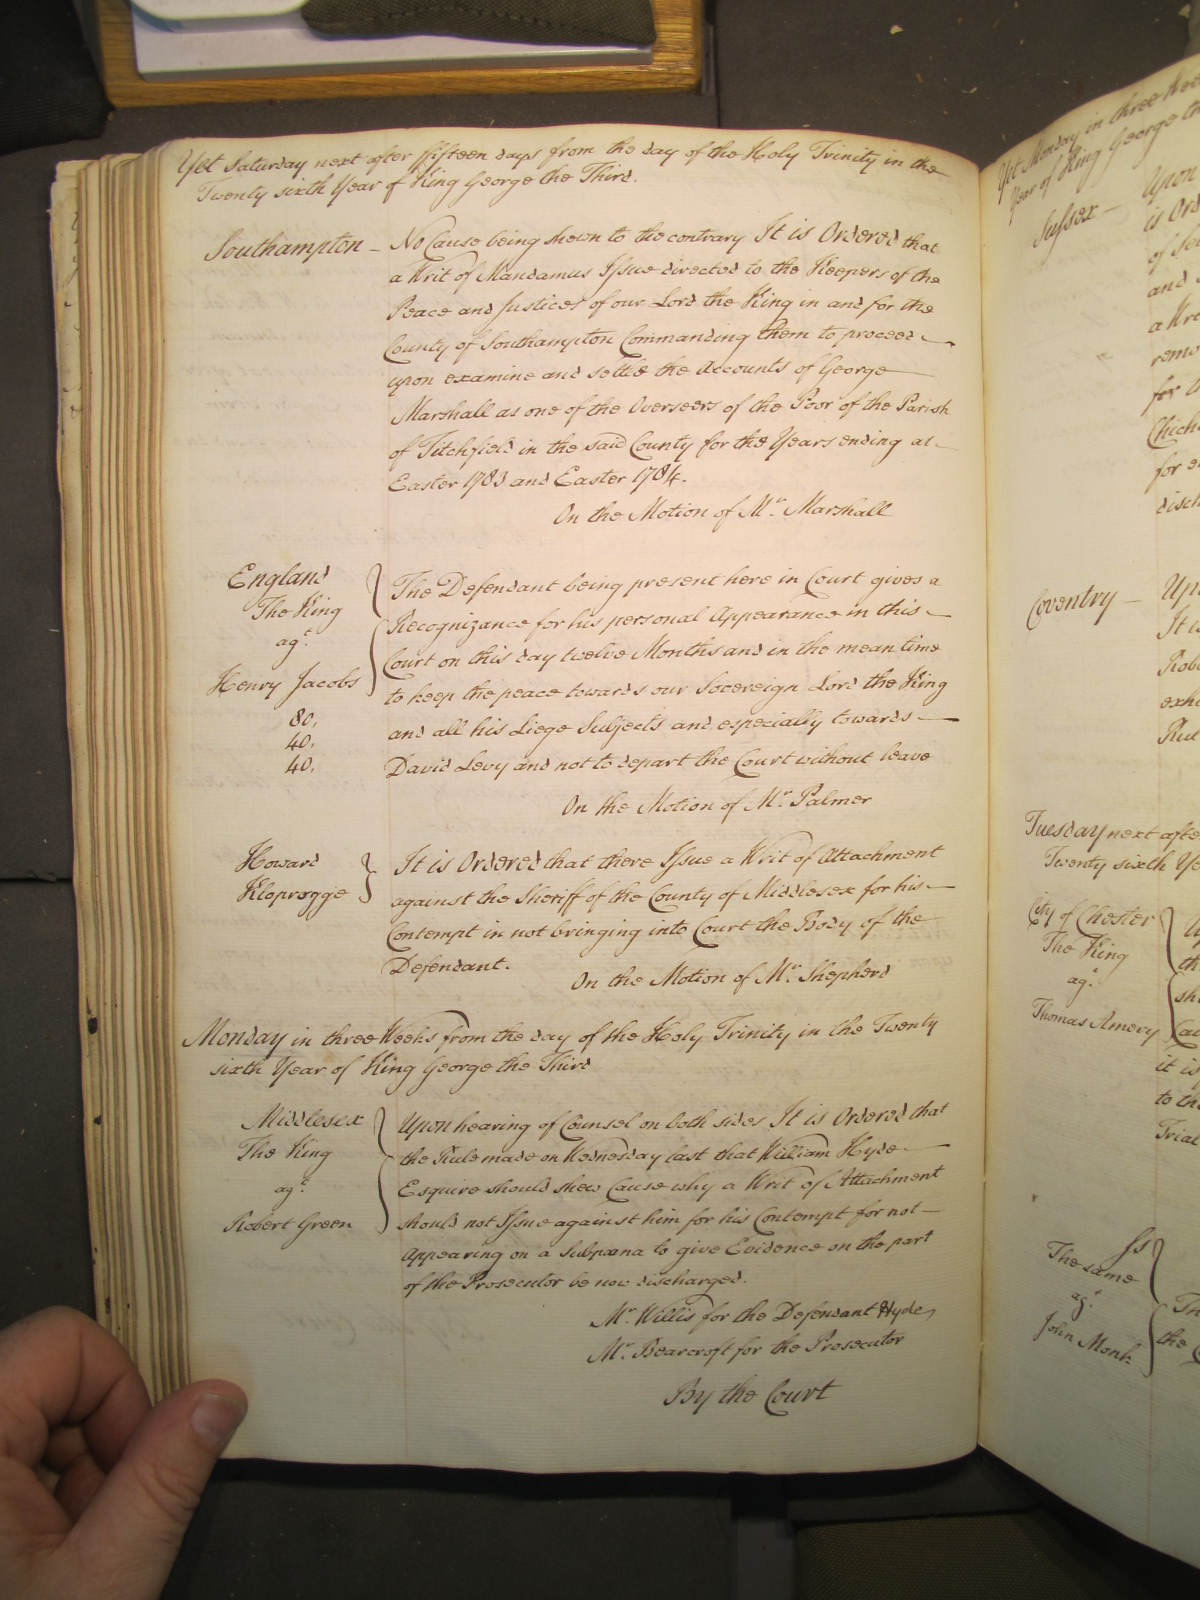 Yet Saturday next after fifteen days from the day of the Holy Trinity in the
Twenty sixth Year of King George the Third.
Southampton – No Cause being shewn to the contrary It is Ordered that
a Writ of Mandamus Issue directed to the Keepers of the
Peace and Justices of our Lord the King in and for the
County of Southampton Commanding them to proceed
upon examine and settle the Accounts of George
Marshall as one of the Overseers of the Poor of the Parish
of Titchfield in the said County for the Years ending at
Easter 1783 and Easter 1784.
On the Motion of Mr. Marshall
England
The King
agt.
Henry Jacobs
80.
40.
40.
The Defendant being present here in Court gives a
Recognizance for his personal Appearance in this
Court on this day twelve Months and in the mean time
to keep the peace towards our Sovereign Lord the King
and all his Liege Subjects and especially towards
David Levy and not to depart the Court without leave
On the Motion of Mr. Palmer
Howard
Kloprogge
It is Ordered that there Issue a Writ of Attachment
against the Sheriff of the County of Middlesex for his
Contempt in not bringing into Court the Body of the
Defendant.
On the Motion of Mr. Shepherd
Monday in three Weeks from the day of the Holy Trinity in the Twenty
sixth Year of King George the Third
Middlesex
The King
agt.
Robert Green
Upon hearing of Counsel on both sides It is Ordered that
the Rule made on Wednesday last that William Hyde
Esquire should shew Cause why a Writ of Attachment
should not Issue against him for his Contempt for not
Appearing on a Subpœna to give Evidence on the part
of the Prosecutor be now discharged.
Mr. Willis for the Defendant Hyde,
Mr. Bearcroft for the Prosecutor
By the Court
Yet Monday in three
Year of King George
Sussex –
Upon
is Ord
of
and
a Wr
remo
for
Chich
for
disch
Coventry –
Up
It is
Rob
exh
Rul
Tuesday next afte
Twenty sixth Ye
City of Chester
The King
agt.
Thomas Amery
th
sh
it is
to th
Trial
Ss
The same
agt.
John Monk
Th
the